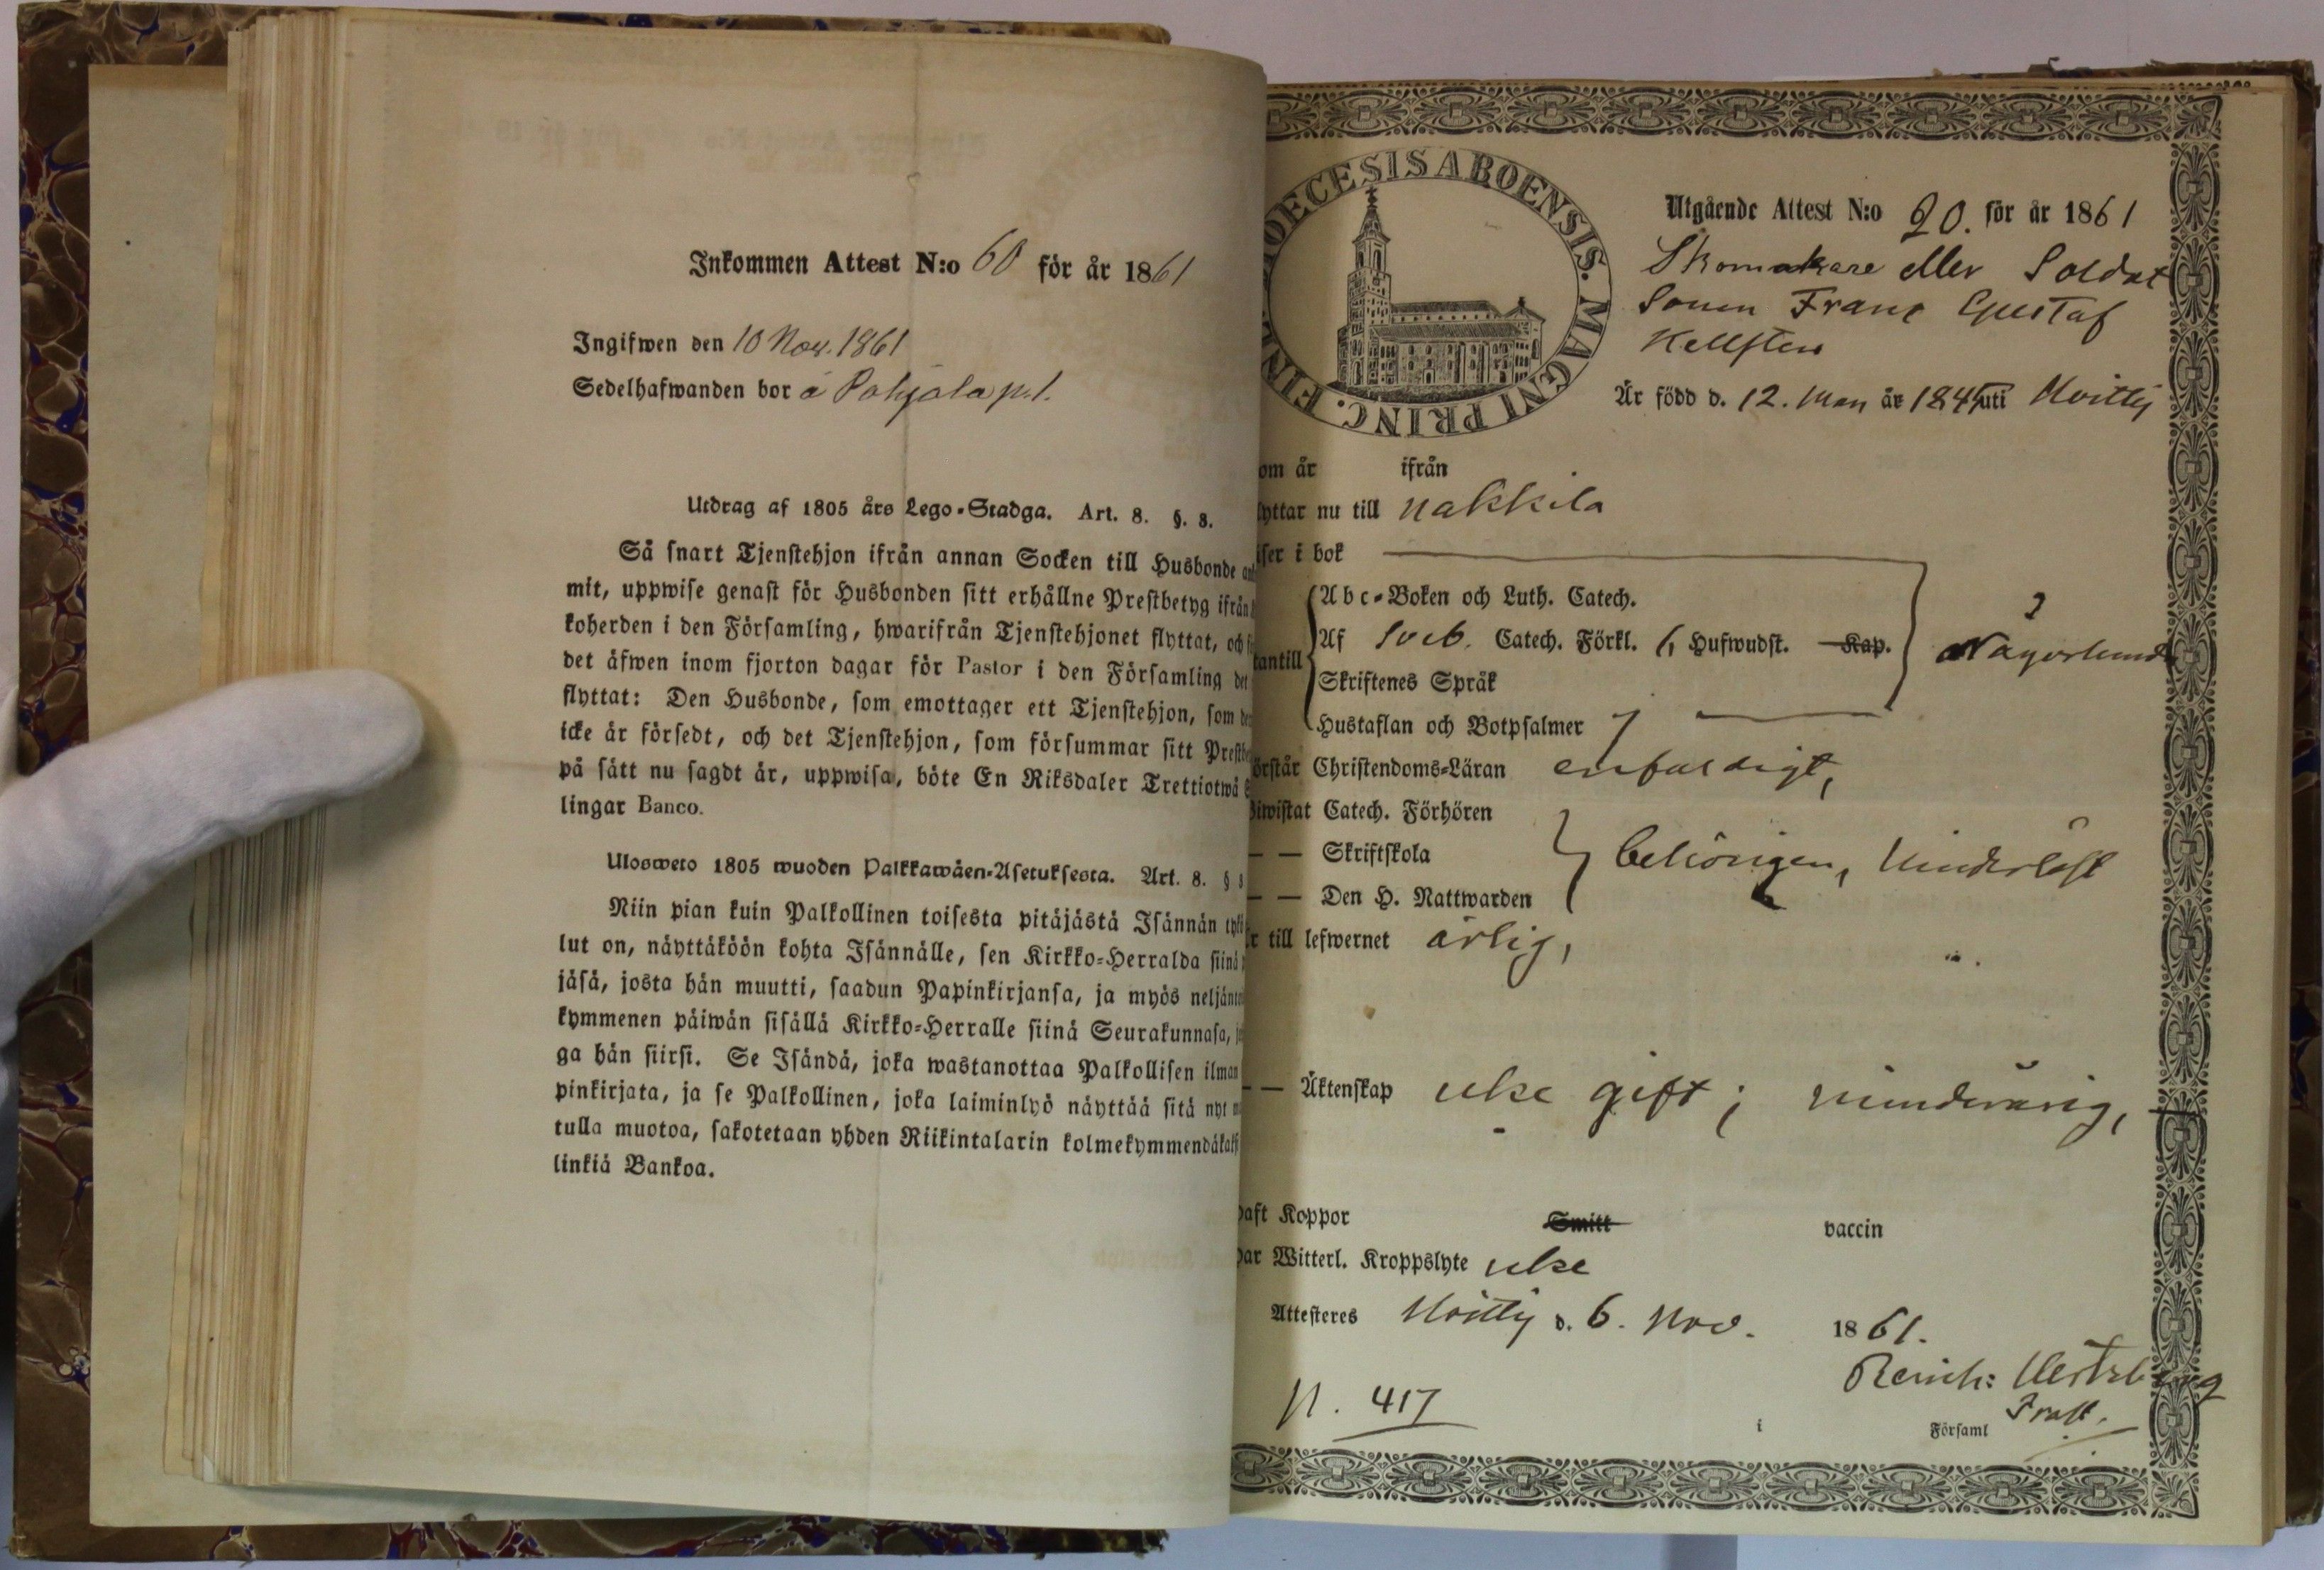 Inkommen Attest N:o 60 för år 1861
Ingifwen den 10 Nov. 1861
Sedelhafwanden bor å Pohjala p. l.
Utdrag af 1805 års Lego-Stadga. Art. 8. §. 8.
Så snart Tjenstehjon ifrån annan Socken till Husbonde
mit, uppwise genast för Husbonden sitt erhållne Prestbetyg ifrån
koherden i den Församling, hwarifrån Tjenstehjonet flyttat, och
det äfwen inom fjorton dagar för Pastor i den Församling det
flyttat: Den Husbonde, som emottager ett Tjenstehjon, som
icke är försedt, och det Tjenstehjon, som försummar sitt Prestbe
på sätt nu sagdt är, uppwisa, böte En Riksdaler Trettiotwå
lingar Banco.
Ulosweto 1805 wuoden Palkkawäen-Asetuksesta. Art. 8. § 8
Niin pian kuin Palkollinen toisesta pitäjästä Isännän tykö
lut on, näyttäköön kohta Isännälle, sen Kirkko-Herralda siinä
jäsä, josta hän muutti, saadun Papinkirjansa, ja myös neljänto
kymmenen päiwän sisällä Kirkko-Herralle siinä Seurakunnasa,
ga hän siirsi. Se Isändä, joka wastanottaa Palkollisen ilman
pinkirjata, ja se Palkollinen, joka laiminlyö näyttää sitä nyt
tulla muotoa, sakotetaan yhden Riikintalarin kolmekymmendäkaks
linkiä Bankoa.
DIOECESIS ABOENSIS. MAGNI PRINC. FIN
Utgående Attest N:o 20. för år 1861
Skomakare eller Soldat
Sonen Frans Gustaf
Kellsten
Är född d. 12. Maij år 1845 uti Hvittis
om år ifrån
lyttar nu till Nakkila
iser i bok
Abc-Boken och Luth. Catech.
antill Af Sveb. Catech. Förkl. 6 Hufwudst. Kap.
Skriftenes Språk
Hustaflan och Botpsalmer
Någorlunda
örstår Christendoms-Läran enfaldigt,
iwistat Catech. Förhören
— — Skriftskola behörigen,
— — Den H. Nattwarden
r till lefwernet ärlig,
— — Äktenskap icke gift; minderårig,
haft Koppor Smitt vaccin
har Witterl. Kroppslyte icke
Attesteres Hvittis d. 6. Nov. 1861.
Reinh: Hertzberg
Prost.
N. 417
i Församl